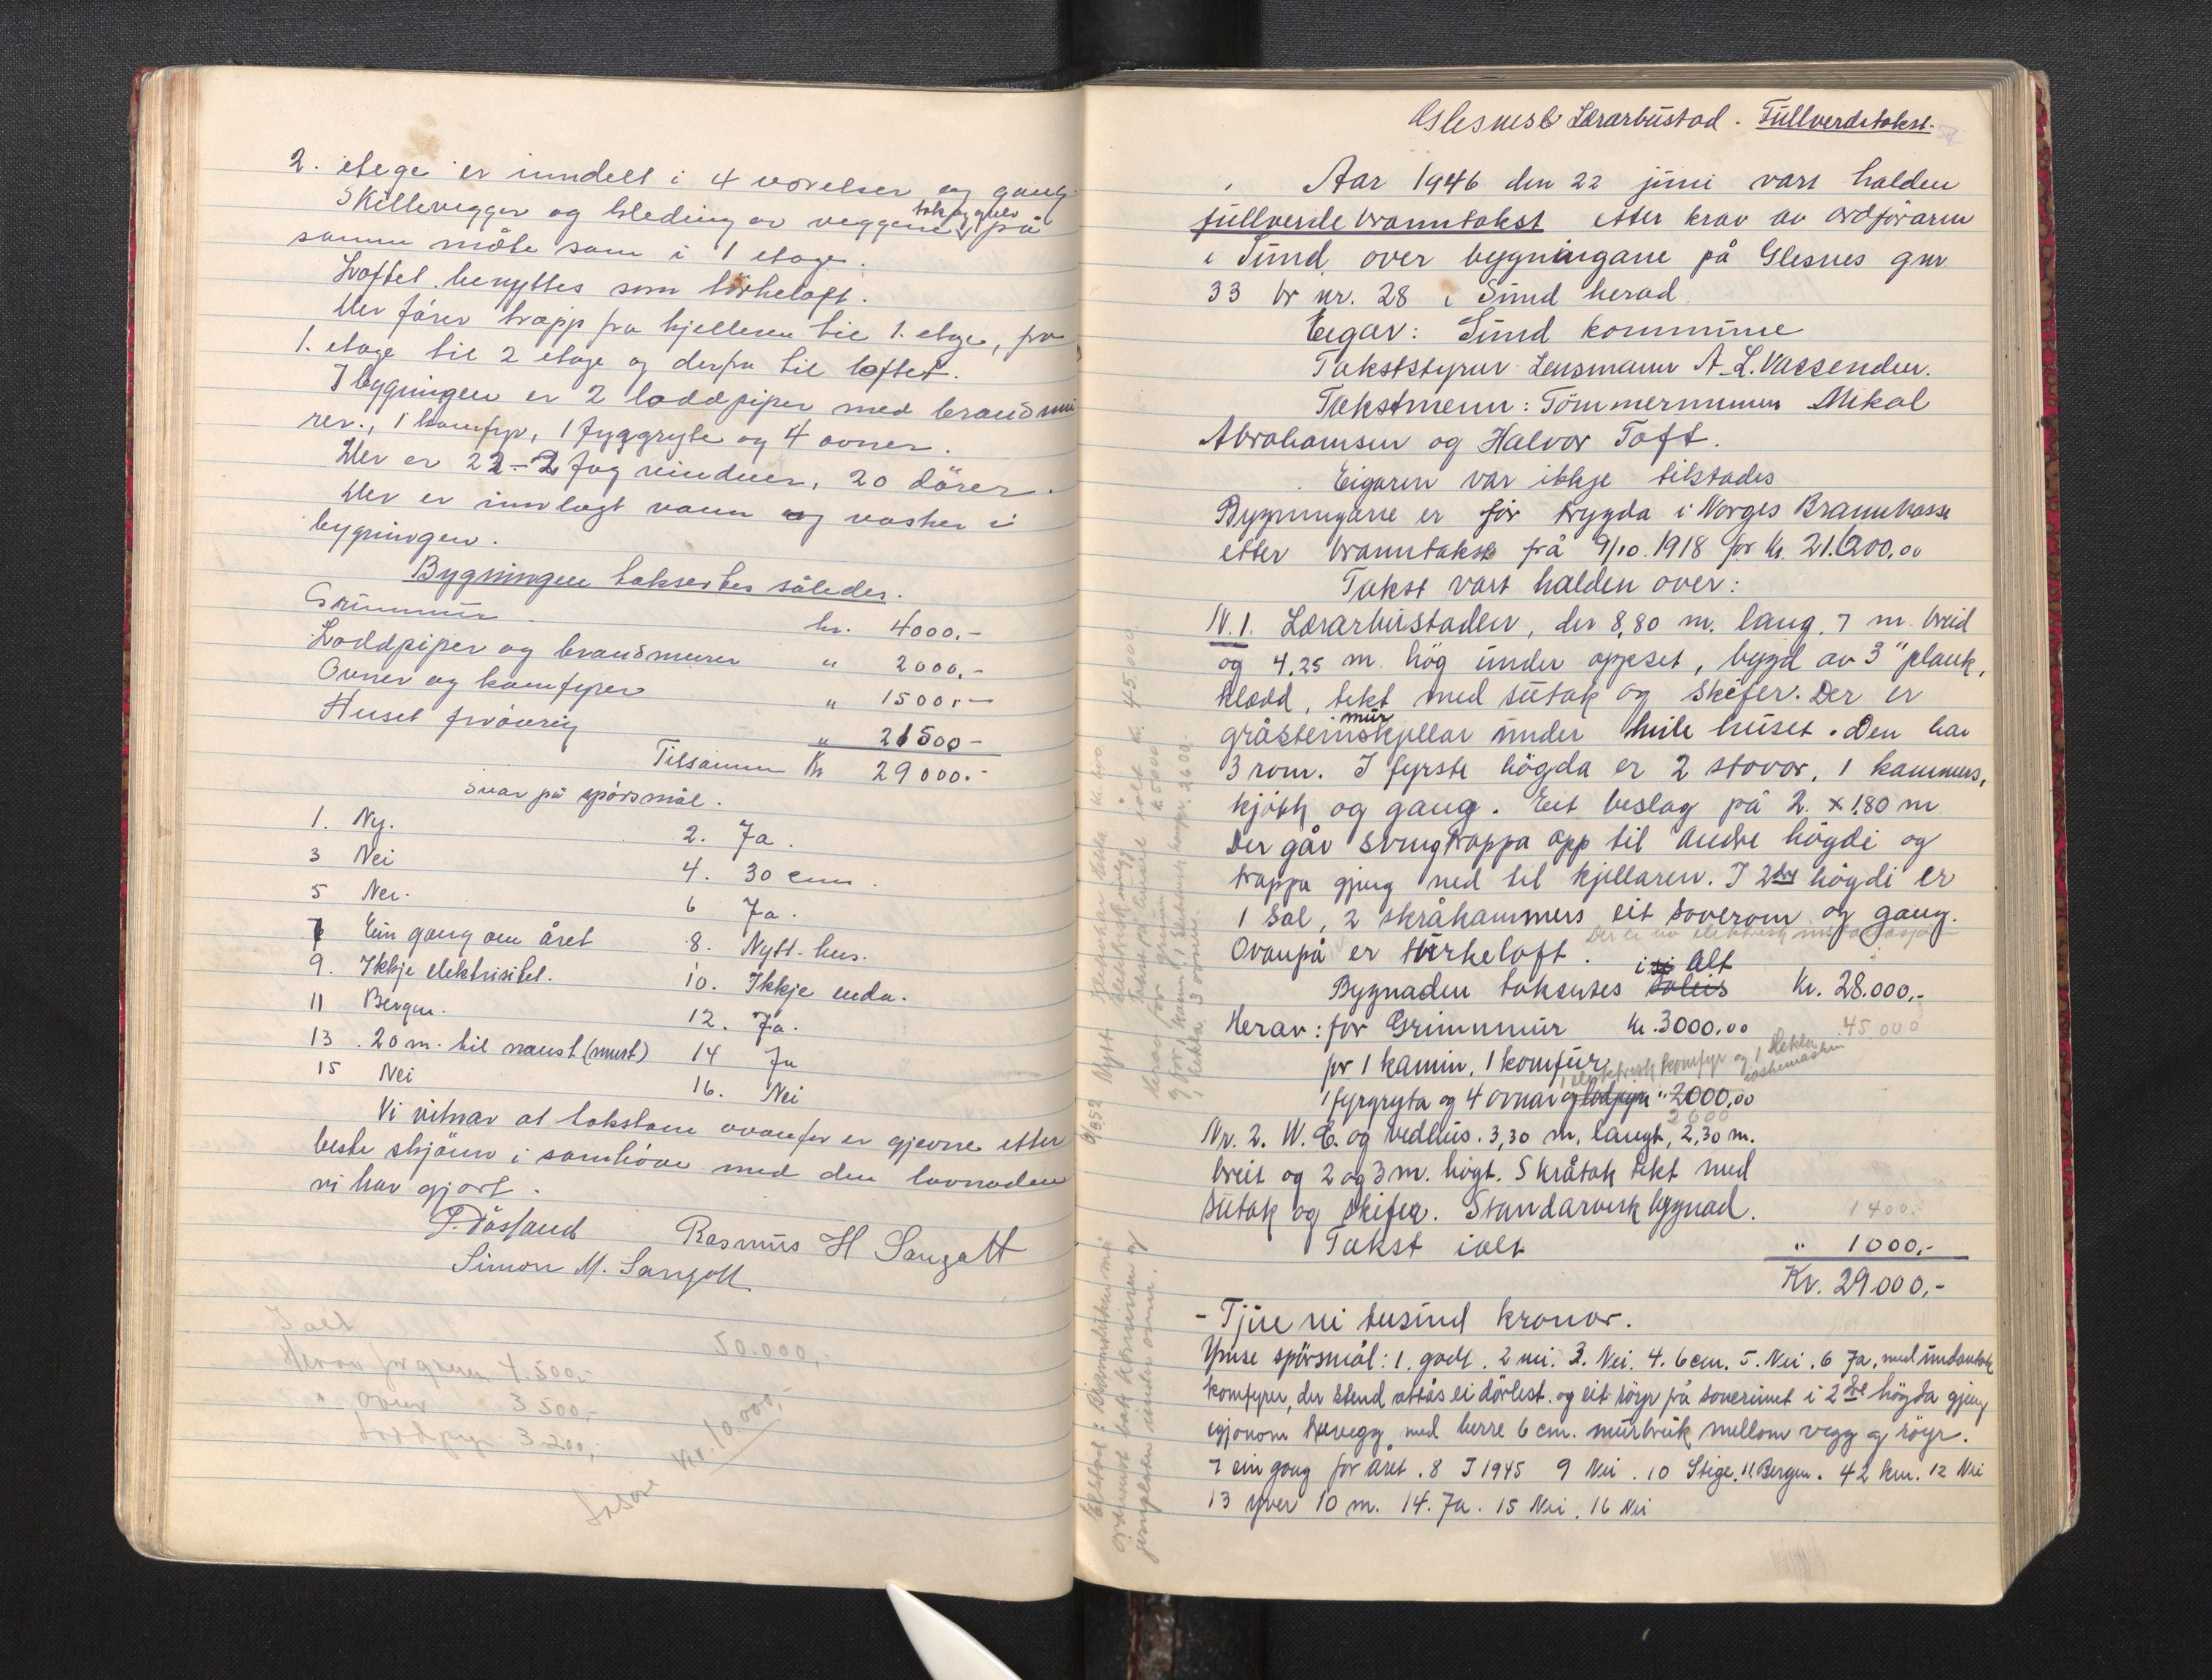 2. etage er inndelt i 4 værelser og gang.
Skillevegger og kleding av veggene tak og gulv på
samme måte som i 1 etage.
Loftet benyttes som tørkeloft.
Der fører trapp fra kjelleren til 1. etage, fra
1. etage til 2 etage og derfra til loftet.
I bygningen er 2 loddpiper med brandmu-
rer., 1 komfyr, 1 fyrgryte og 4 ovner.
Der er 22 - 2 fag vinduer, 20 dører.
Der er innlagt vann og vasker i
bygningen.
Bygningen takseres således.
Grunnmur kr. 4000.-
Loddpiper og brandmurer " 2000.-
Ovner og komfyrer " 1500.-
Huset forøvrig " 21500-
Tilsammen Kr 29000.-
Svar på spörsmål.
1. Ny. 2. Ja.
3 Nei 4. 30 cm.
5 Nei. 6 Ja.
7 Ein gang om året 8. Nytt hus.
9. Ikkje elektrisitet. 10. Ikkje enda.
11 Bergen. 12. Ja.
13. 20 m. til naust (murt) 14 Ja
15 Nei 16. Nei
Vi vitnar at takstane ovanfor er gjevne etter
beste skjönn i samhöve med den lovnaden
vi har gjort.
Rasmus H Sangolt
Simon M. Sangolt
I alt 50.000,-
Herav for grunn 4.500.-
" ovner 3500,-
Loddpipe 3200,-
kr. 10.000,-
Glesnes Lærarbustad. Fullverdetakst.
Aar 1946 den 22 juni vart halden
fullverde branntakst etter krav av ordföraren
i Sund over bygningane på Glesnes gnr
33 br nr. 28 i Sund herad
Eigar: Sund kommune
Takststyrar Lensmann A. L. Vassenden.
Takstmenn: Tömmermennene Mikal
Abrahamsen og Halvor Toft.
Eigaren var ikkje tilstades
Bygningane er för trygda i Norges Brannkasse
etter branntakst frå 9/10. 1918 for kr. 21.200,00
Takst vart halden over:
N. 1. Lærarbustaden, der 8,80 m. lang, 7 m. breid
og 4,25 m. hög under oppset, bygd av 3" plank,
klædd, tekt med sutak og skifer. Der er
gråsteinsmur kjellar under heile huset. Den har
3 rom. I fyrste högda er 2 stovor, 1 kammers,
kjökk og gang. Eit beslag på 2. x 1.80 m
Der går svingtrappa opp til andre högdi og
trappa gjeng ned til kjellaren. I 2dre högdi er
1 Sal, 2 skråkammers eit soverom og gang.
Ovanpå er turkeloft. Der er no elektrisk
Bygnaden takseres i alt Kr. 28.000,-
Herav: for Grunnmur Kr. 3000,00 45.000
for 1 kamin, 1 komfur, 1 elektrisk komfyr og 1 elektr. vaskemaskin
1 fyrgryta og 4 ovnar " 2000,00
2600
Nr. 2. W. C. og vedhus. 3,30 m. langt, 2,30 m.
breit og 2 og 3 m. högt. Skråtak tekt med
sutak og skifer. Standarverk bygnad. 1400.-
Takst ialt " 1000,-
Kr. 29.000,-
- Tjue ni tusund kronor.
Ymse spörsmål: 1. godt. 2 nei. 3. Nei. 4. 6 cm. 5. Nei. 6 Ja, med undantak
komfyren, der stend attås ei dörlist. og eit röyr på soverumet i 2dre högda gjeng
igjonom trevegg med berre 6 cm. murbruk mellom vegg og röyr.
7 ein gong for året. 8 I 1945 9 Nei. 10 Stige, 11. Bergen. 42 km. 12 Nei
13 yver 10 m. 14. Ja. 15 Nei. 16 Nei